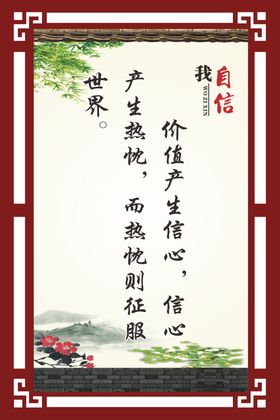 我自信
WO ZI XIN
价值产生信心，信心
产生热忱，而热忱则征服
世界。